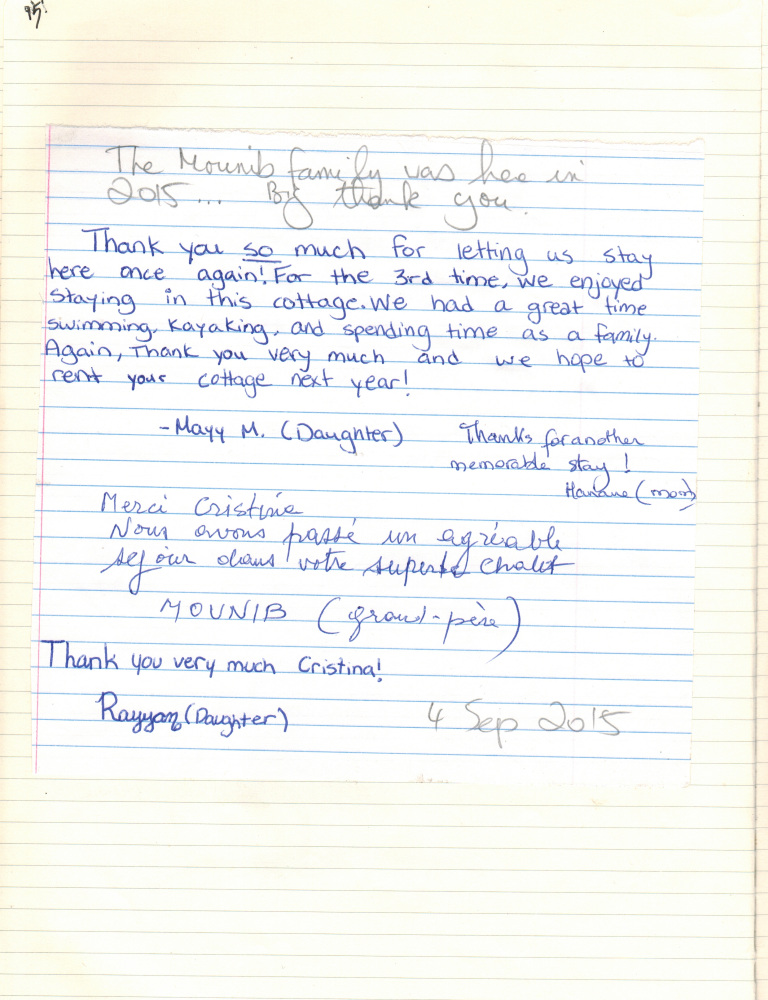 95!
The Mounib family was hee in
2015... Big thank you.
Thank you so much for letting us stay
here once again! For the 3rd time, we enjoyed
staying in this cottage. We had a great time
swimming, kayaking, and spending time as a family.
Again, Thank you very much and we hope to
rent your cottage next year!
-Mayy M. (Daughter)
Thanks for another
memorable stay!
Hanane (mom)
Merci Cristina
Nous avons passé un agréable
sejour dans votre superbe chalet
MOUNIB (grand-père)
Thank you very much Cristina!
Rayyan (Daughter)
4 Sep 2015